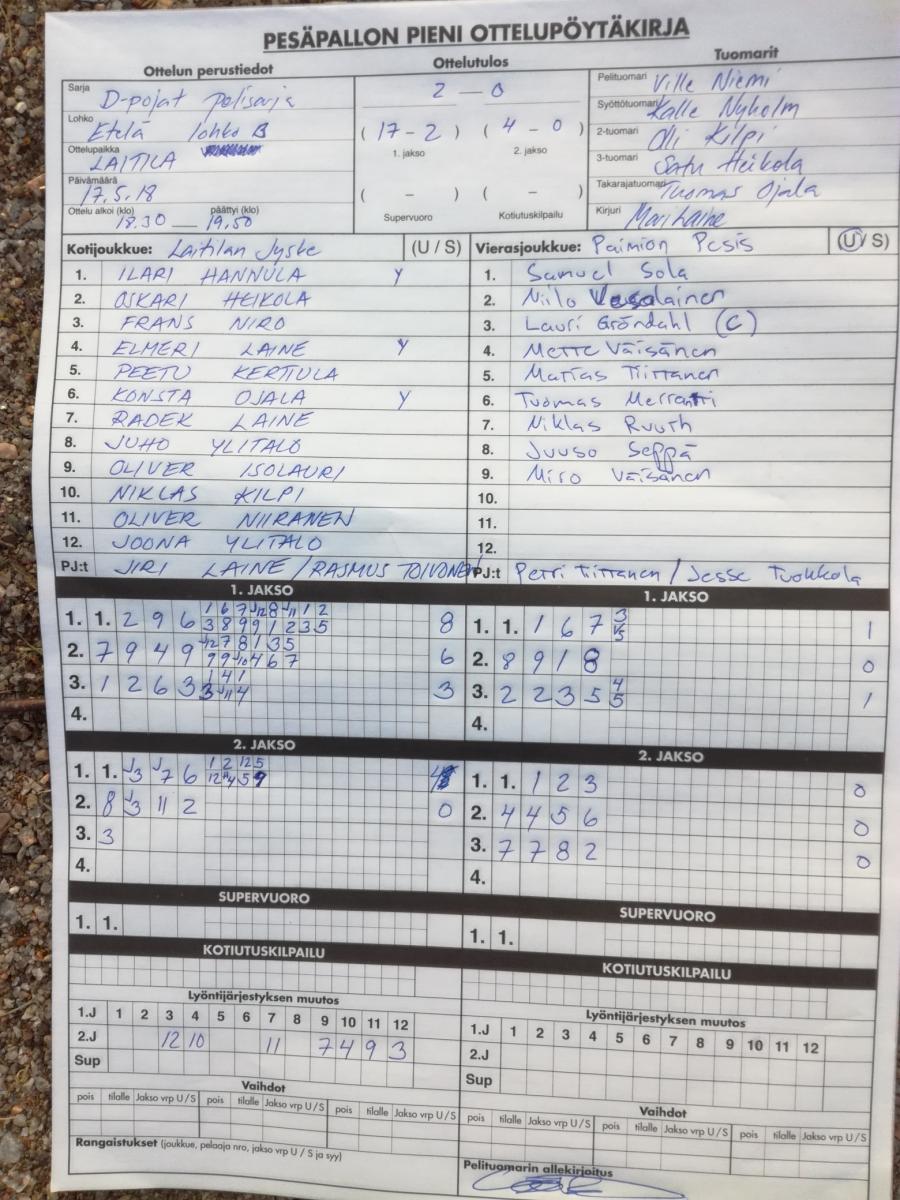 PESÄPALLON PIENI OTTELUPÖYTÄKIRJA
Ottelun perustiedot
Sarja D-pojat
Lohko Etelä lohko B
Ottelupaikka LAITILA
Päivämäärä 17.5.18
Ottelu alkoi (klo) päättyi (klo)
18.30 — 19.50
Ottelutulos
2 — 0
( 17 - 2 ) ( 4 - 0 )
1. jakso 2. jakso
( - ) ( - )
Supervuoro Kotiutuskilpailu
Tuomarit
Pelituomari Ville Niemi
Syöttötuomari Kalle Nyholm
2-tuomari Olli Kilpi
3-tuomari Satu Heikola
Takarajatuomari Tuomas Ojala
Kirjuri Mari Laine
Kotijoukkue: Laitilan Jyske (U / S)
1. ILARI HANNULA Y
2. OSKARI HEIKOLA
3. FRANS NIRO
4. ELMERI LAINE Y
5. PEETU KERTTULA
6. KONSTA OJALA Y
7. RADEK LAINE
8. JUHO YLITALO
9. OLIVER ISOLAURI
10. NIKLAS KILPI
11. OLIVER NIIRANEN
12. JOONA YLITALO
PJ:t JIRI LAINE / RASMUS TOIVONEN
Vierasjoukkue: Paimion Pesis (U / S)
1. Samuel Sola
2. Niilo Vesalainen
3. Lauri Gröndahl (C)
4. Mette Väisänen
5. Matias Tiittanen
6. Tuomas
7. Niklas Ruuth
8. Juuso Seppä
9. Miro Väisänen
10.
11.
12.
PJ:t Petri Tiittanen / Jesse Tuokkola
1. JAKSO
1. 1. 2 9 6 8
2. 7 9 4 9 6
3. 1 2 6 3 3
4.
1. JAKSO
1. 1. 1 6 7 1
2. 8 9 1 8 0
3. 2 2 3 5 4 5 1
4.
2. JAKSO
1. 1. J3 J7 6 4
2. 8 J3 11 2 0
3. 3
4.
2. JAKSO
1. 1. 1 2 3 0
2. 4 4 5 6 0
3. 7 7 8 2 0
4.
SUPERVUORO
1. 1.
SUPERVUORO
1. 1.
KOTIUTUSKILPAILU
KOTIUTUSKILPAILU
Lyöntijärjestyksen muutos
1.J 1 2 3 4 5 6 7 8 9 10 11 12
2.J 12 10 11 7 4 9 3
Sup
Lyöntijärjestyksen muutos
1.J 1 2 3 4 5 6 7 8 9 10 11 12
2.J
Sup
Vaihdot
pois tilalle Jakso vrp U / S pois tilalle Jakso vrp U / S pois tilalle Jakso vrp U / S
Vaihdot
pois tilalle Jakso vrp U / S pois tilalle Jakso vrp U / S pois tilalle Jakso vrp U / S
Rangaistukset (joukkue, pelaaja nro, jakso vrp U / S ja syy)
Pelituomarin allekirjoitus